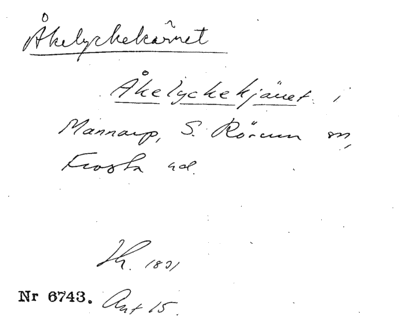 Åkelyckekärret
Åkelyckekjäret i
Mannarp, S. Rörum sn,
Frosta hd.
Th. 1801
Nr 6743. Akt 15.